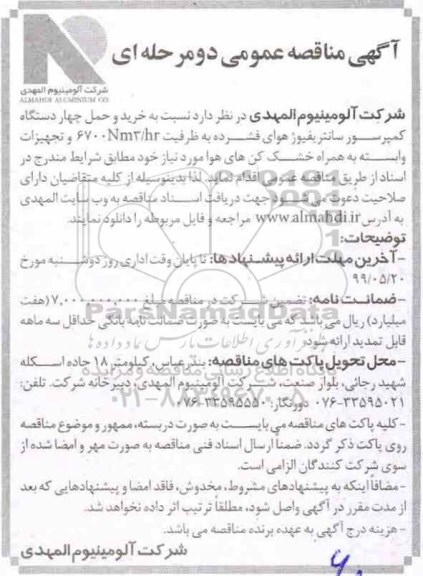 آگهی مناقصه عمومی دو مرحله ای
شرکت آلومینیوم المهدی
ALMAHDI ALUMINIUM CO.
شرکت آلومینیوم المهدی در نظر دارد نسبت به خرید و حمل چهار دستگاه
کمپرسور سانتریفیوژ هوای فشرده به ظرفیت ۶۷۰۰Nm۳/hr و تجهیزات
وابسته به همراه خشک کن های هوا مورد نیاز خود مطابق شرایط مندرج در
اسناد از طریق مناقصه عمومی اقدام نماید. لذا بدینوسیله از کلیه متقاضیان دارای
صلاحیت دعوت می شود جهت دریافت اسناد مناقصه به وب سایت المهدی
به آدرس www.almahdi.ir مراجعه و فایل مربوطه را دانلود نمایند.
توضیحات:
-آخرین مهلت ارائه پیشنهادها: تا پایان وقت اداری روز دوشنبه مورخ
۹۹/۰۵/۲۰
-ضمانت نامه: تضمین شرکت در مناقصه مبلغ ۷,۰۰۰,۰۰۰,۰۰۰ (هفت
میلیارد) ریال می باشد که می بایست به صورت ضمانت نامه بانکی حداقل سه ماهه
قابل تمدید ارائه شود.
-محل تحویل پاکت های مناقصه: بندرعباس، کیلومتر ۱۸ جاده اسکله
شهید رجائی، بلوار صنعت، شرکت آلومینیوم المهدی، دبیرخانه شرکت. تلفن:
۰۷۶-۳۳۵۹۵۰۲۱ دورنگار: ۰۷۶-۳۳۵۹۵۵۵۰
-کلیه پاکت های مناقصه می بایست به صورت دربسته، ممهور و موضوع مناقصه
روی پاکت ذکر گردد. ضمناً ارسال اسناد فنی مناقصه به صورت مهر و امضا شده از
سوی شرکت کنندگان الزامی است.
-مضافاً اینکه به پیشنهادهای مشروط، مخدوش، فاقد امضا و پیشنهادهایی که بعد
از مدت مقرر در آگهی واصل شود، مطلقاً ترتیب اثر داده نخواهد شد.
-هزینه درج آگهی به عهده برنده مناقصه می باشد.
شرکت آلومینیوم المهدی
ParsNamadData